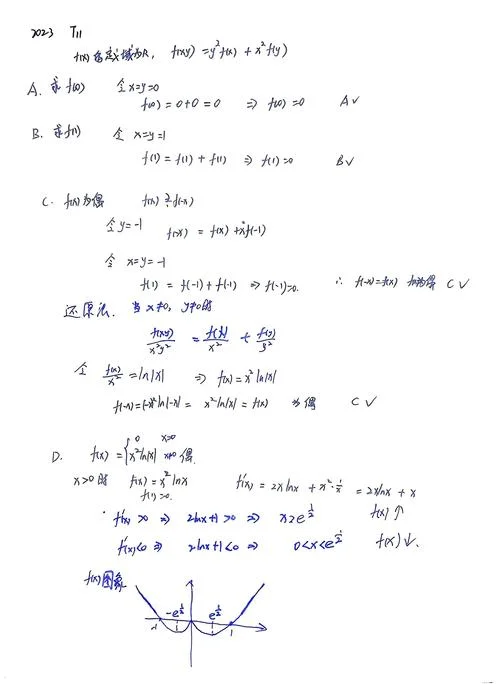 2023 T11
f(x)的定义域为R, f(xy)=y²f(x)+x²f(y)
A. 求f(0) 令x=y=0
f(0)=0+0=0 ⇒ f(0)=0 A✓
B. 求f(1) 令x=y=1
f(1)=f(1)+f(1) ⇒ f(1)=0 B✓
C. f(x)为偶 f(x)?f(-x)
令y=-1 f(-x)=f(x)+x²f(-1)
令x=y=-1
f(1)=f(-1)+f(-1) ⇒ f(-1)=0. ∴ f(-x)=f(x) 为偶 C✓
还原法. 当x≠0, y≠0时
f(xy)/x²y² = f(x)/x² + f(y)/y²
令 f(x)/x² = ln|x| ⇒ f(x)=x²ln|x|
f(-x)=(-x)²ln|-x|= x²ln|x|=f(x) 为偶 C✓
D. f(x)={0 x=0
x²ln|x| x≠0 偶.
x>0时 f(x)=x²lnx f'(x)=2xlnx+x²·1/x =2xlnx+x
f(1)=0.
f'(x)>0 ⇒ 2lnx+1>0 ⇒ x>e^½ f(x)↑
f'(x)<0 ⇒ 2lnx+1<0 ⇒ 0<x<e^½ f(x)↓.
f(x)图象
-e^½ e^½
-1 1